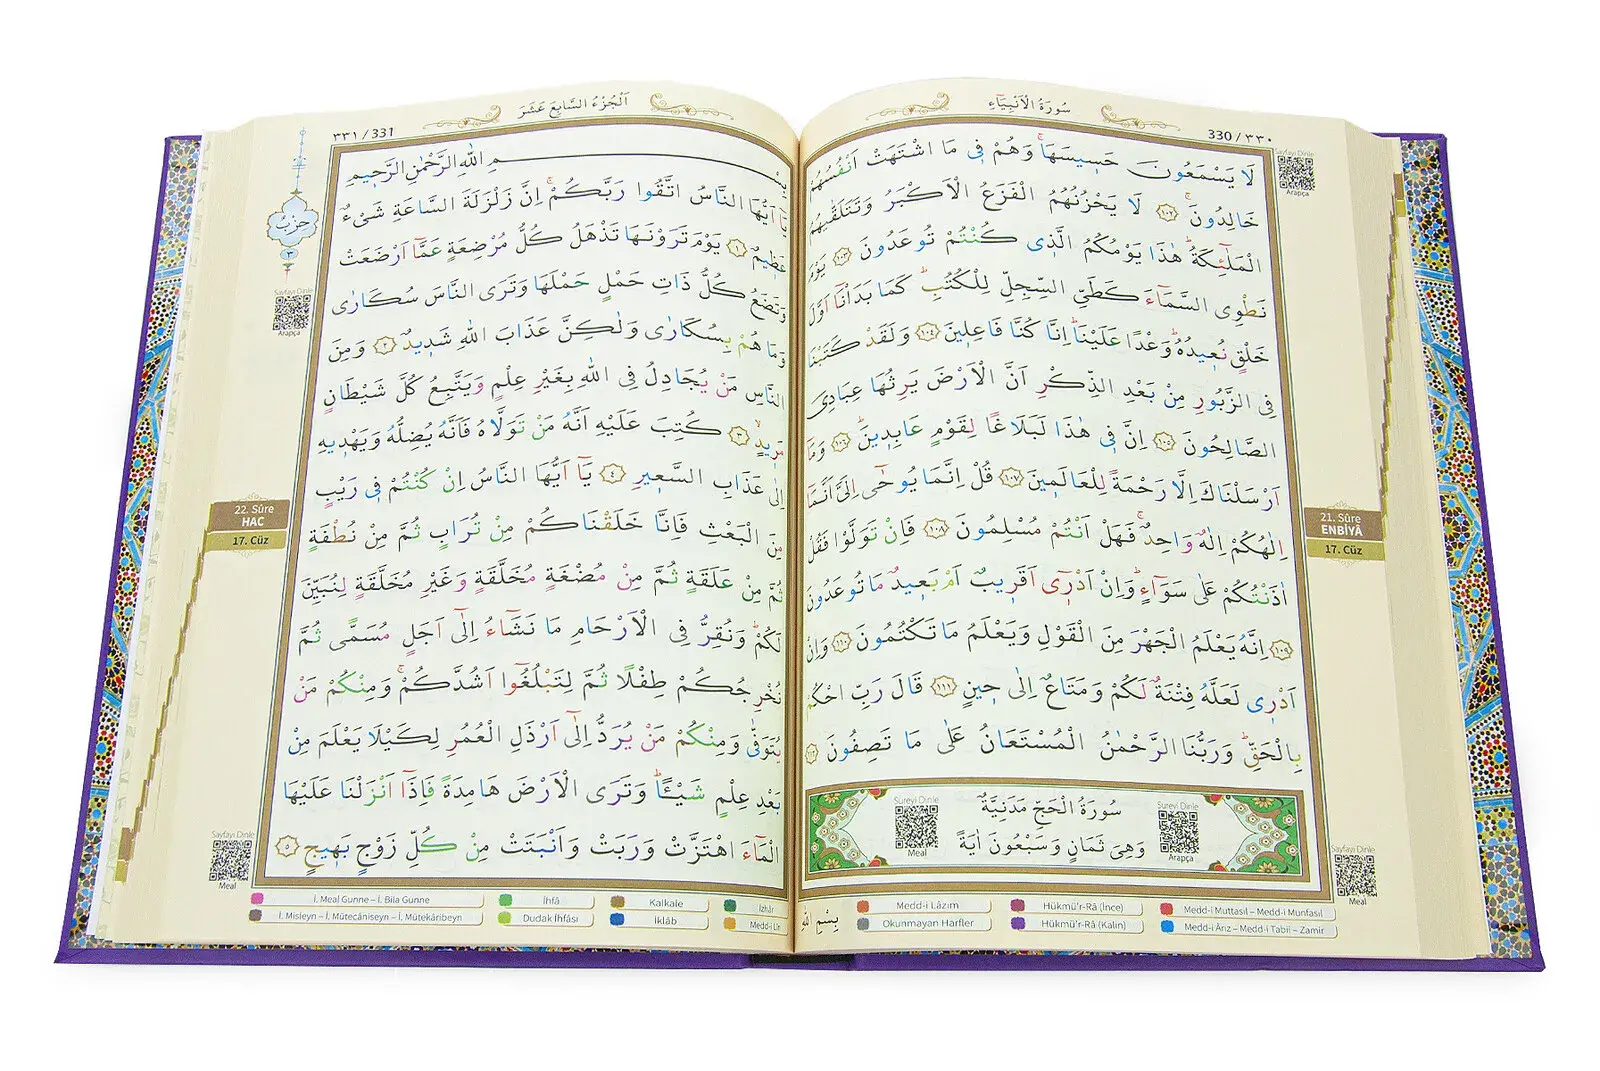 330 / ٣٣٠
سُورَةُ الْاَنْبِيَٓاءِ
لَا يَسْمَعُونَ حَسِيسَهَاۚ وَهُمْ فِي مَا اشْتَهَتْ اَنْفُسُهُمْ
خَالِدُونَۚ ﴿١٠٢﴾ لَا يَحْزُنُهُمُ الْفَزَعُ الْاَكْبَرُ وَتَتَلَقّٰيهُمُ
الْمَلٰٓئِكَةُؕ هٰذَا يَوْمُكُمُ الَّذِي كُنْتُمْ تُوعَدُونَ ﴿١٠٣﴾ يَوْمَ
نَطْوِي السَّمَٓاءَ كَطَيِّ السِّجِلِّ لِلْكُتُبِؕ كَمَا بَدَأْنَٓا اَوَّلَ
خَلْقٍ نُعِيدُهُؕ وَعْدًا عَلَيْنَاؕ اِنَّا كُنَّا فَاعِلِينَ ﴿١٠٤﴾ وَلَقَدْ كَتَبْنَا
فِي الزَّبُورِ مِنْ بَعْدِ الذِّكْرِ اَنَّ الْاَرْضَ يَرِثُهَا عِبَادِيَ
الصَّالِحُونَ ﴿١٠٥﴾ اِنَّ فِي هٰذَا لَبَلَاغًا لِقَوْمٍ عَابِدِينَؕ ﴿١٠٦﴾ وَمَٓا
اَرْسَلْنَاكَ اِلَّا رَحْمَةً لِلْعَالَمِينَ ﴿١٠٧﴾ قُلْ اِنَّمَا يُوحٰٓى اِلَيَّ اَنَّمَٓا
اِلٰهُكُمْ اِلٰهٌ وَاحِدٌۚ فَهَلْ اَنْتُمْ مُسْلِمُونَ ﴿١٠٨﴾ فَاِنْ تَوَلَّوْا فَقُلْ
اٰذَنْتُكُمْ عَلٰى سَوَٓاءٍؕ وَاِنْ اَدْرِٓي اَقَرِيبٌ اَمْ بَعِيدٌ مَا تُوعَدُونَ
﴿١٠٩﴾ اِنَّهُ يَعْلَمُ الْجَهْرَ مِنَ الْقَوْلِ وَيَعْلَمُ مَا تَكْتُمُونَ ﴿١١٠﴾ وَاِنْ
اَدْرِي لَعَلَّهُ فِتْنَةٌ لَكُمْ وَمَتَاعٌ اِلٰى حِينٍ ﴿١١١﴾ قَالَ رَبِّ احْكُمْ
بِالْحَقِّؕ وَرَبُّنَا الرَّحْمٰنُ الْمُسْتَعَانُ عَلٰى مَا تَصِفُونَ ﴿١١٢﴾
سُورَةُ الْحَجِّ مَدَنِيَّةٌ
وَهِيَ ثَمَانٍ وَسَبْعُونَ اٰيَةً
Sureyi Dinle
Meal
Sureyi Dinle
Arapça
Sayfayı Dinle
Arapça
21. Sûre
ENBİYÂ
17. Cüz
Sayfayı Dinle
Meal
بِسْمِ اللهِ
Medd-i Lâzım
Hükmü'r-Râ (İnce)
Medd-i Muttasıl – Medd-i Munfasıl
Okunmayan Harfler
Hükmü'r-Râ (Kalın)
Medd-i Ârız – Medd-i Tabiî – Zamir
اَلْجُزْءُ السَّابِعَ عَشَرَ
٣٣١ / 331
بِسْمِ اللهِ الرَّحْمٰنِ الرَّحِيمِ
يَٓا اَيُّهَا النَّاسُ اتَّقُوا رَبَّكُمْۚ اِنَّ زَلْزَلَةَ السَّاعَةِ شَيْءٌ
عَظِيمٌ ﴿١﴾ يَوْمَ تَرَوْنَهَا تَذْهَلُ كُلُّ مُرْضِعَةٍ عَمَّٓا اَرْضَعَتْ
وَتَضَعُ كُلُّ ذَاتِ حَمْلٍ حَمْلَهَا وَتَرَى النَّاسَ سُكَارٰى
وَمَا هُمْ بِسُكَارٰى وَلٰكِنَّ عَذَابَ اللهِ شَدِيدٌ ﴿٢﴾ وَمِنَ
النَّاسِ مَنْ يُجَادِلُ فِي اللهِ بِغَيْرِ عِلْمٍ وَيَتَّبِعُ كُلَّ شَيْطَانٍ
مَرِيدٍۙ ﴿٣﴾ كُتِبَ عَلَيْهِ اَنَّهُ مَنْ تَوَلَّاهُ فَاَنَّهُ يُضِلُّهُ وَيَهْدِيهِ
اِلٰى عَذَابِ السَّعِيرِ ﴿٤﴾ يَٓا اَيُّهَا النَّاسُ اِنْ كُنْتُمْ فِي رَيْبٍ
مِنَ الْبَعْثِ فَاِنَّا خَلَقْنَاكُمْ مِنْ تُرَابٍ ثُمَّ مِنْ نُطْفَةٍ
ثُمَّ مِنْ عَلَقَةٍ ثُمَّ مِنْ مُضْغَةٍ مُخَلَّقَةٍ وَغَيْرِ مُخَلَّقَةٍ لِنُبَيِّنَ
لَكُمْؕ وَنُقِرُّ فِي الْاَرْحَامِ مَا نَشَٓاءُ اِلٰٓى اَجَلٍ مُسَمًّى ثُمَّ
نُخْرِجُكُمْ طِفْلًا ثُمَّ لِتَبْلُغُٓوا اَشُدَّكُمْۚ وَمِنْكُمْ مَنْ
يُتَوَفّٰى وَمِنْكُمْ مَنْ يُرَدُّ اِلٰٓى اَرْذَلِ الْعُمُرِ لِكَيْلَا يَعْلَمَ مِنْ
بَعْدِ عِلْمٍ شَيْـًٔاؕ وَتَرَى الْاَرْضَ هَامِدَةً فَاِذَٓا اَنْزَلْنَا عَلَيْهَا
الْمَٓاءَ اهْتَزَّتْ وَرَبَتْ وَاَنْبَتَتْ مِنْ كُلِّ زَوْجٍ بَهِيجٍ ﴿٥﴾
حِزْبٌ
٣
Sayfayı Dinle
Arapça
22. Sûre
HAC
17. Cüz
Sayfayı Dinle
Meal
İ. Meal Gunne – İ. Bila Gunne
İhfâ
Kalkale
İzhâr
İ. Misleyn – İ. Mütecâniseyn – İ. Mütekâribeyn
Dudak İhfâsı
İklâb
Medd-i Lîn